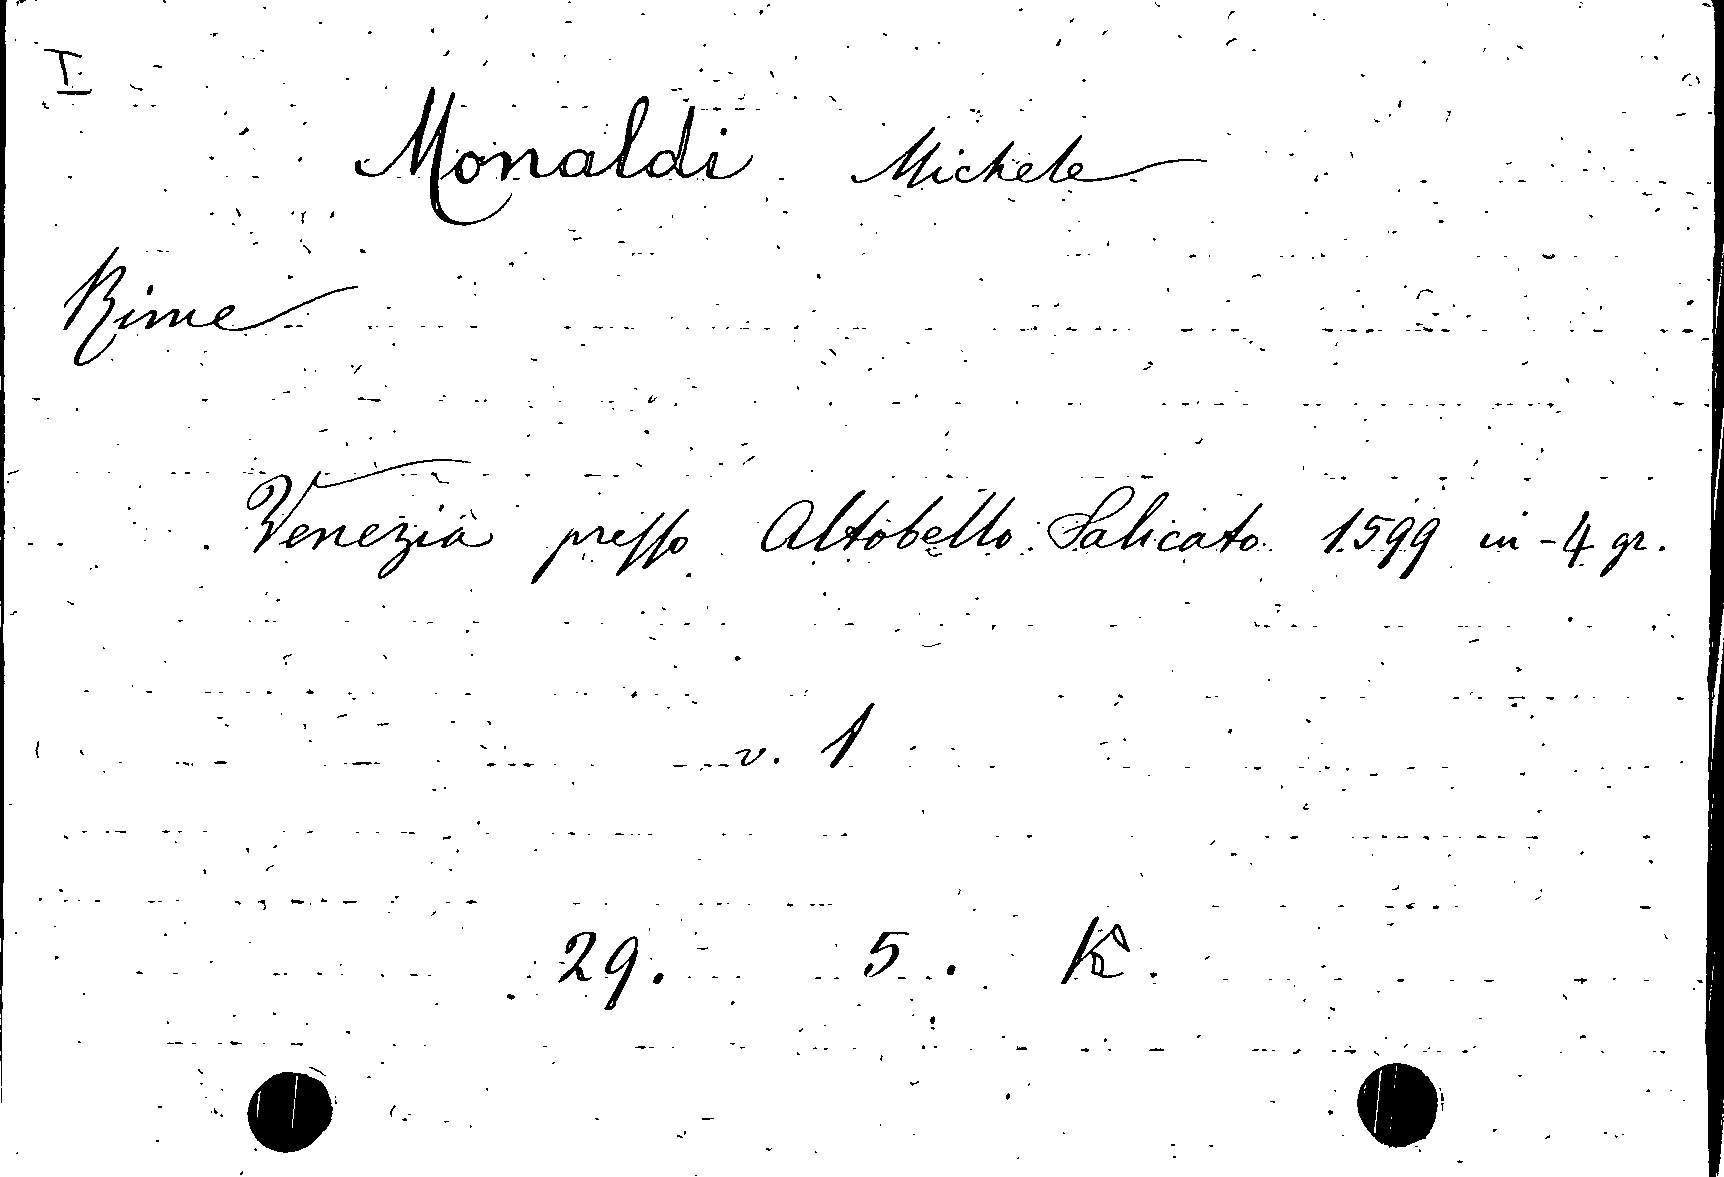 I.
Monaldi Michele
Rime
Venezia presso Altobello Salicato 1599 in-4 gr.
v. 1
29. 5. K.